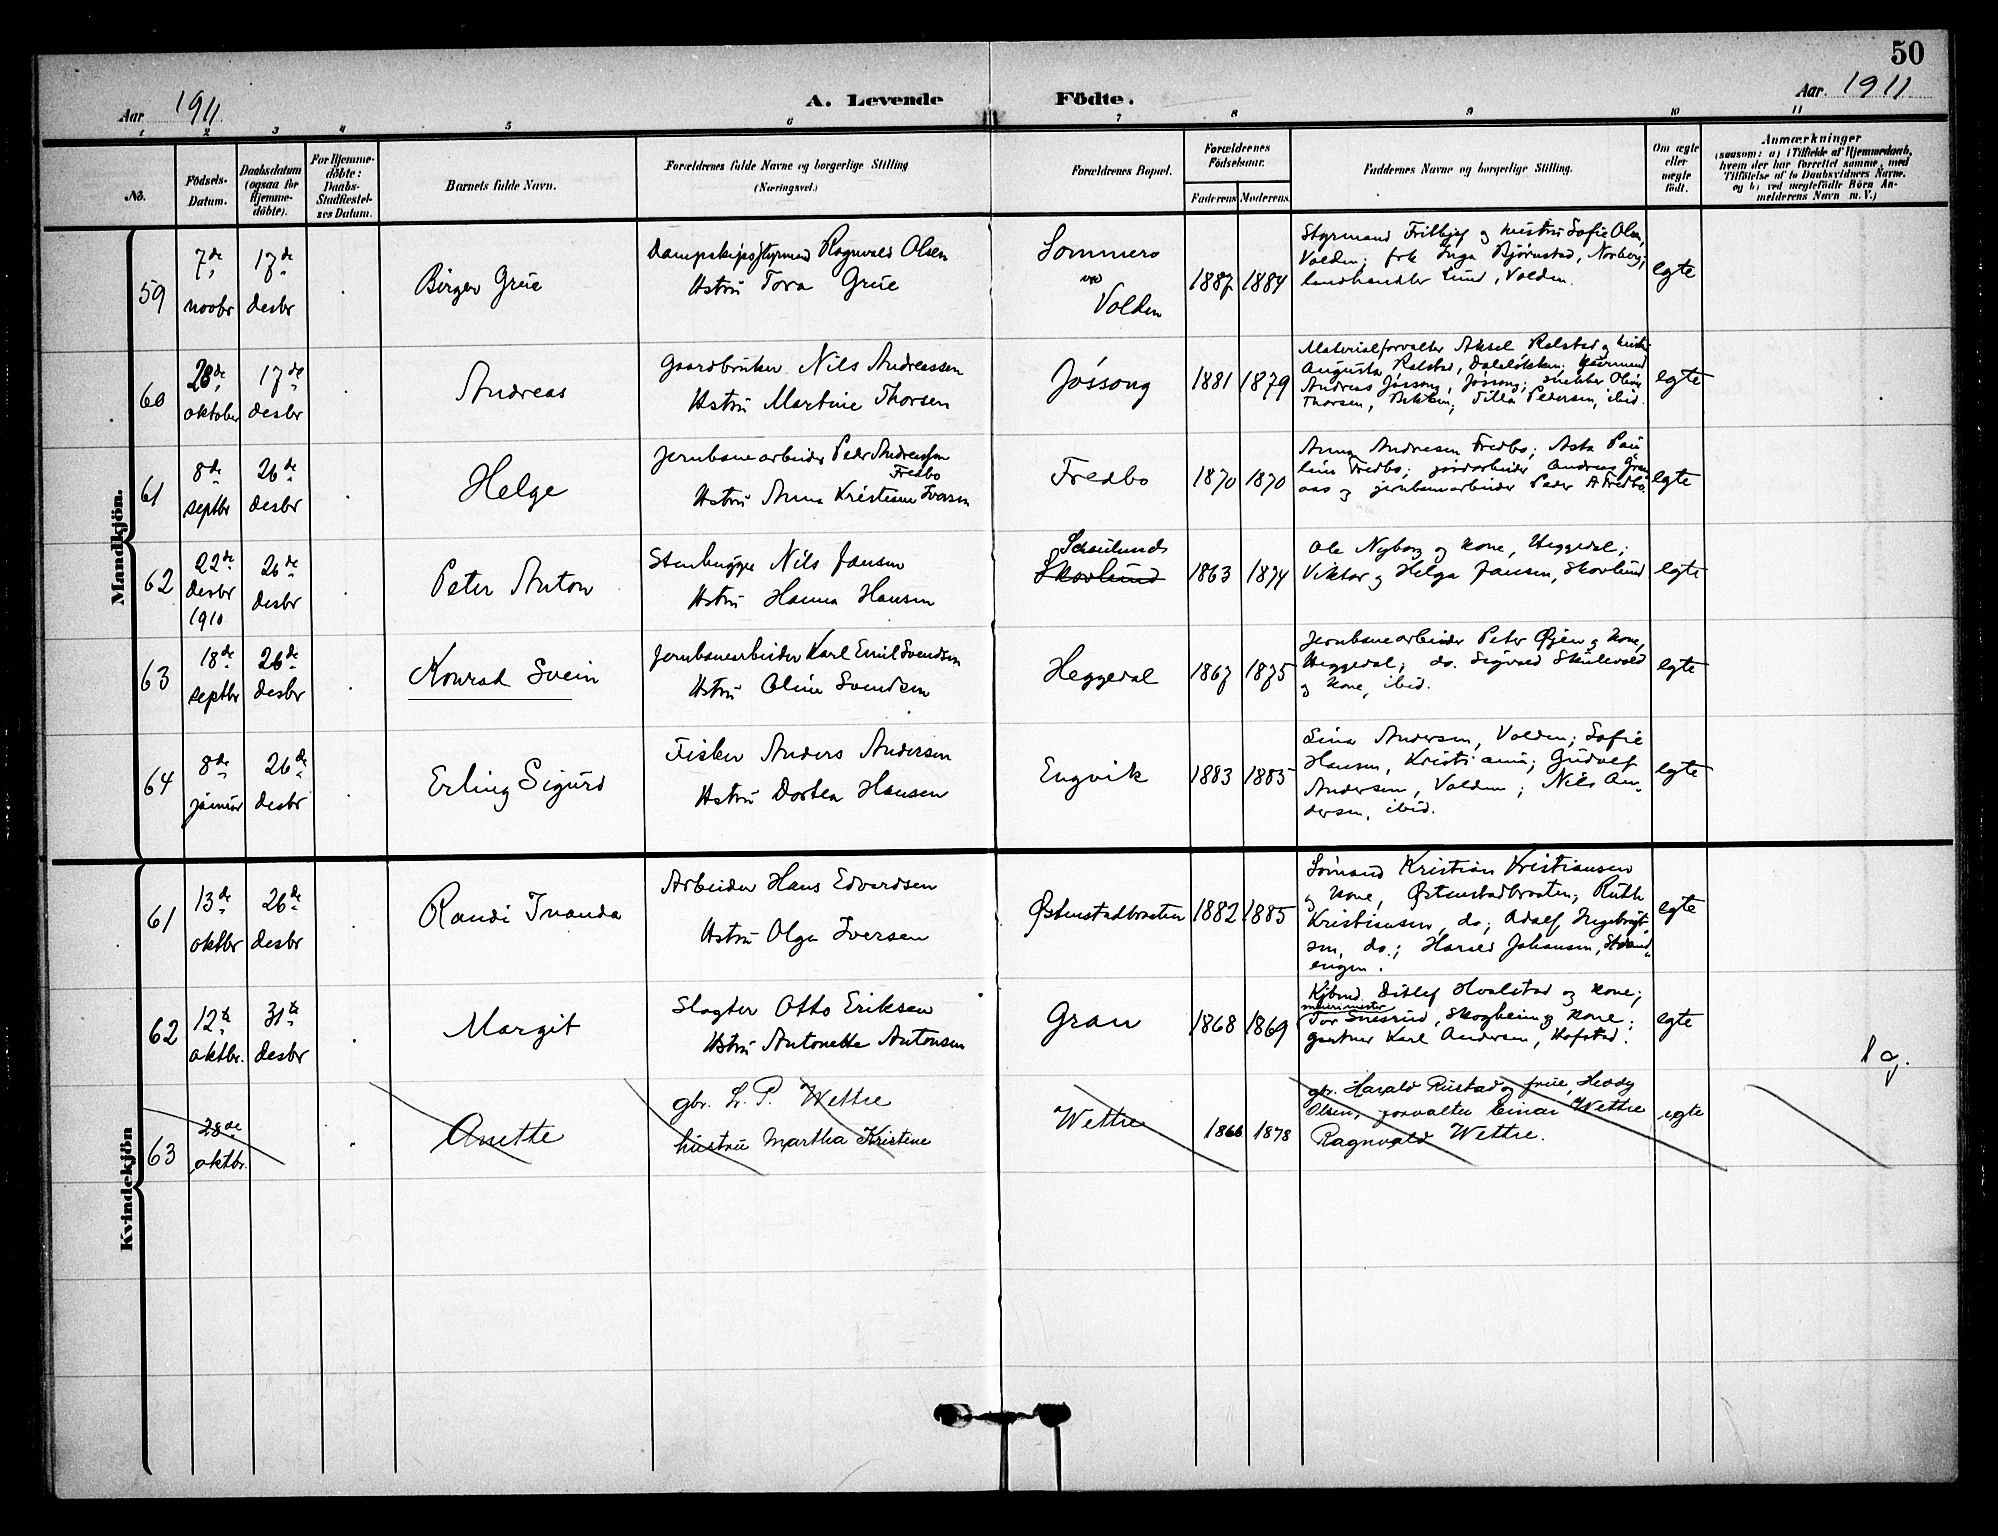 50
Aar 1911
A. Levende Födte.
Aar. 1911
1 2 3 4 5 6 7 8 9 10 11
No.
Födsels-Datum.
Daabsdatum (ogsaa for Hjemme-döbte).
For Hjemme-döbte: Daabs-Stadfestel-ses Datum.
Barnets fulde Navn.
Forældrenes fulde Navne og borgerlige Stilling
(Næringsvei.)
Forældrenes Bopæl.
Forældrenes Födselsaar.
Faderens Moderens
Faddernes Navne og borgerlige Stilling.
Om ægte eller uægte födt.
Anmærkninger
(saasom: a) i Tilfælde af Hjemmedaab,
hvem der har forrettet samme, med
Tilföielse af to Daabsvidners Navne,
og b) ved uægtefödte Börn An-
melderens Navn m. V.)
Mandkjön.
59
7de novbr
17de desbr
Birger Grüe
Dampskipsstyrmand Ragnvald Olsen
Hstrü Tora Grüe
Sommero
ved
Volden
1887 1884
Styrmand Frithjof og hüstrü Sofie Olsen,
Volden; frk Inga Bjørnstad, Norberg;
landhandler Lund, Volden.
egte
60
28de oktober
17de desbr
Andreas
Gaardbrüker Nils Andreassen
Hstrü Martine Thorsen
Jøssong
1881 1879
Materialforvalter Aksel Ralstad og hüstrü
Augusta Ralstad, Daleløkken;
Andreas Jøssong, Jøssong; snekker
Thorsen, Tilla Pedersen, ibid.
egte
61
8de septbr
26de desbr
Helge
Jernbanearbeider Peder Andreassen
Fredbo
Hstrü Anna Kristiane Iversen
Fredbo
1870 1870
Anna Andresen Fredbo; Asta Pau
line Fredbo; jordarbeider Andreas Gran
aas og jernbanearbeider Peder A Fredbo.
egte
62
22de desbr 1910
26de desbr
Peter Anton
Stenhugger Nils Jansen
Hstrü Hanna Hansen
Skovlund
1863 1874
Ole Nyborg og kone, Heggedal;
Viktor og Helga Jansen, Skovlund
egte
63
18de septbr
26de desbr
Konrad Svein
Jernbanearbeider Karl Emil Svendsen
Hstrü Oline Svendsen
Heggedal
1867 1875
Jernbanearbeider Peter Øjen og kone,
Heggedal; do. Sigvard Skülevold
og kone, ibid.
egte
64
8de januar
26de desbr
Erling Sigürd
Fisker Anders Andersen
Hstrü Dortea Hansen
Engvik
1883 1885
Lina Andersen, Volden; Sofie
Hansen, Kristiania; Güdolf
Andersen, Volden; Nils An-
dersen, ibid.
egte
Kvindekjön
61
13de oktbr
26de desbr
Randi Ivanda
Arbeider Hans Edvardsen
Hstrü Olga Iversen
Østenstadbraaten
1882 1885
Sømand Kristian Kristiansen
og kone, Østenstadbraaten; Ruth
Kristiansen, do; Adolf Ingebrigt-
sen, do.; Harald Johansen, Strand-
engen.
egte
62
12te oktbr.
31te desbr
Margit
Slagter Otto Eriksen
Hstrü Antonette Antonsen
Gran
1868 1869
Kjbmd Ditlef Hvalstad og kone;
murmester
Tor Snesrud, Skogheim og kone;
gartner Karl Andersen, Hofstad.
egte
63
28de oktbr.
Anette
gbr. L. P. Wettre
hustru Martha Kristine
Wettre
1866 1878
gbr. Harald Rüstad og frue, Heddy
Olsen, forvalter Einar Wettre
Ragnvald Wettre.
egte